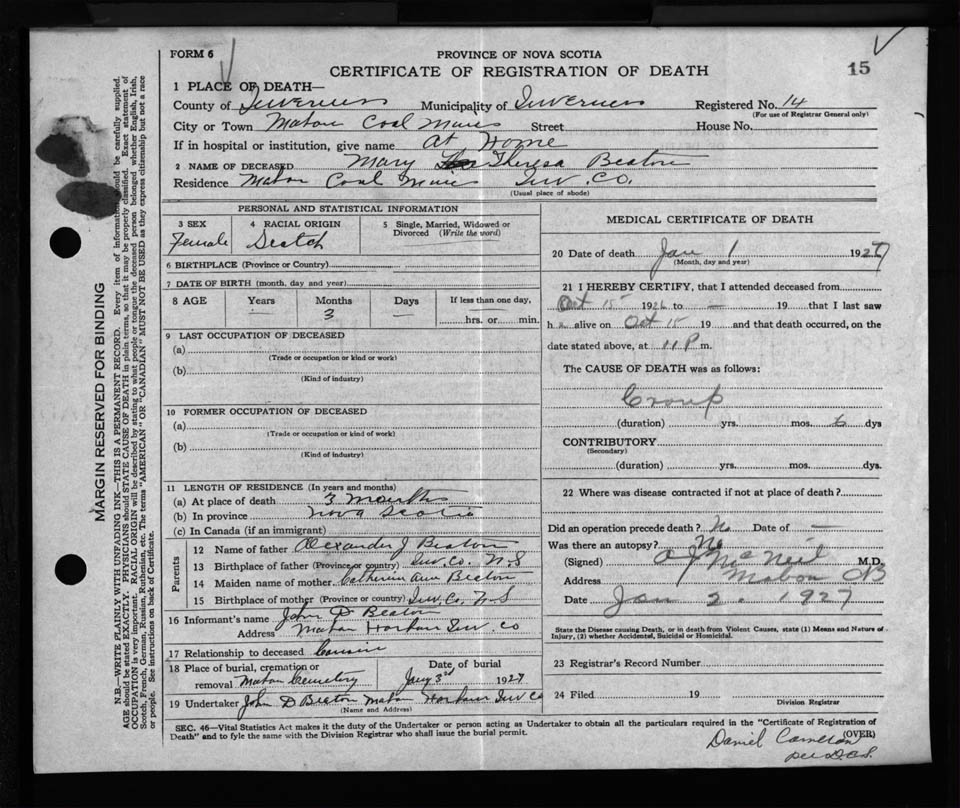 FORM 6
PROVINCE OF NOVA SCOTIA
CERTIFICATE OF REGISTRATION OF DEATH
15
1 PLACE OF DEATH—
County of Inverness Municipality of Inverness Registered No. 14
(For use of Registrar General only)
City or Town Mabou Coal Mines Street House No.
If in hospital or institution, give name At Home
2 NAME OF DECEASED Mary Theresa Beaton
Residence Mabou Coal Mines Inv. Co.
(Usual place of abode)
MARGIN RESERVED FOR BINDING
N.B.—WRITE PLAINLY WITH UNFADING INK—THIS IS A PERMANENT RECORD. Every item of information should be carefully supplied.
AGE should be stated EXACTLY. PHYSICIANS should STATE CAUSE OF DEATH in plain terms, so that it may be properly classified. Exact statement of
OCCUPATION is very important. RACIAL ORIGIN will be described by stating to what people or tongue the deceased person belonged whether English, Irish,
Scotch, French, German, Russian, Ruthenian, etc. The terms "AMERICAN" OR "CANADIAN" MUST NOT BE USED as they express citizenship but not a race
or people. See instructions on back of Certificate.
PERSONAL AND STATISTICAL INFORMATION
3 SEX
Female
4 RACIAL ORIGIN
Scotch
5 Single, Married, Widowed or
Divorced (Write the word)
6 BIRTHPLACE (Province or Country)
7 DATE OF BIRTH (month, day and year)
8 AGE Years Months Days If less than one day,
— 3 — hrs. or min.
9 LAST OCCUPATION OF DECEASED
(a)
(Trade or occupation or kind or work)
(b)
(Kind of industry)
10 FORMER OCCUPATION OF DECEASED
(a)
(Trade or occupation or kind of work)
(b)
(Kind of industry)
11 LENGTH OF RESIDENCE (In years and months)
(a) At place of death 3 months
(b) In province Nova Scotia
(c) In Canada (if an immigrant)
Parents
12 Name of father Alexander J Beaton
13 Birthplace of father (Province or country) Inv. Co. N. S
14 Maiden name of mother Catherine Ann Beaton
15 Birthplace of mother (Province or country) Inv. Co. N. S
16 Informant's name John D Beaton
Address Mabou Harbour Inv. Co
17 Relationship to deceased Cousin
18 Place of burial, cremation or
removal Mabou Cemetery
Date of burial
Jany 3rd 1927
19 Undertaker John D Beaton Mabou Harbour Inv Co
(Name and Address)
MEDICAL CERTIFICATE OF DEATH
20 Date of death Jan 1 1927
(Month, day and year)
21 I HEREBY CERTIFY, that I attended deceased from
Oct 15 1926 to — 19 that I last saw
h alive on Oct 15 19 and that death occurred, on the
date stated above, at 11 P m.
The CAUSE OF DEATH was as follows:
Croup
(duration) yrs. mos. 6 dys
CONTRIBUTORY
(Secondary)
(duration) yrs. mos. dys.
22 Where was disease contracted if not at place of death?
Did an operation precede death? No Date of —
Was there an autopsy? No
(Signed) McNeil M.D.
Address Mabou
Date Jan 2. 1927
State the Disease causing Death, or in death from Violent Causes, state (1) Means and Nature of
Injury, (2) whether Accidental, Suicidal or Homicidal.
23 Registrar's Record Number
24 Filed 19
Division Registrar
SEC. 46—Vital Statistics Act makes it the duty of the Undertaker or person acting as Undertaker to obtain all the particulars required in the "Certificate of Registration of
Death" and to fyle the same with the Division Registrar who shall issue the burial permit.
(OVER)
Daniel Cameron
per D.C.S.